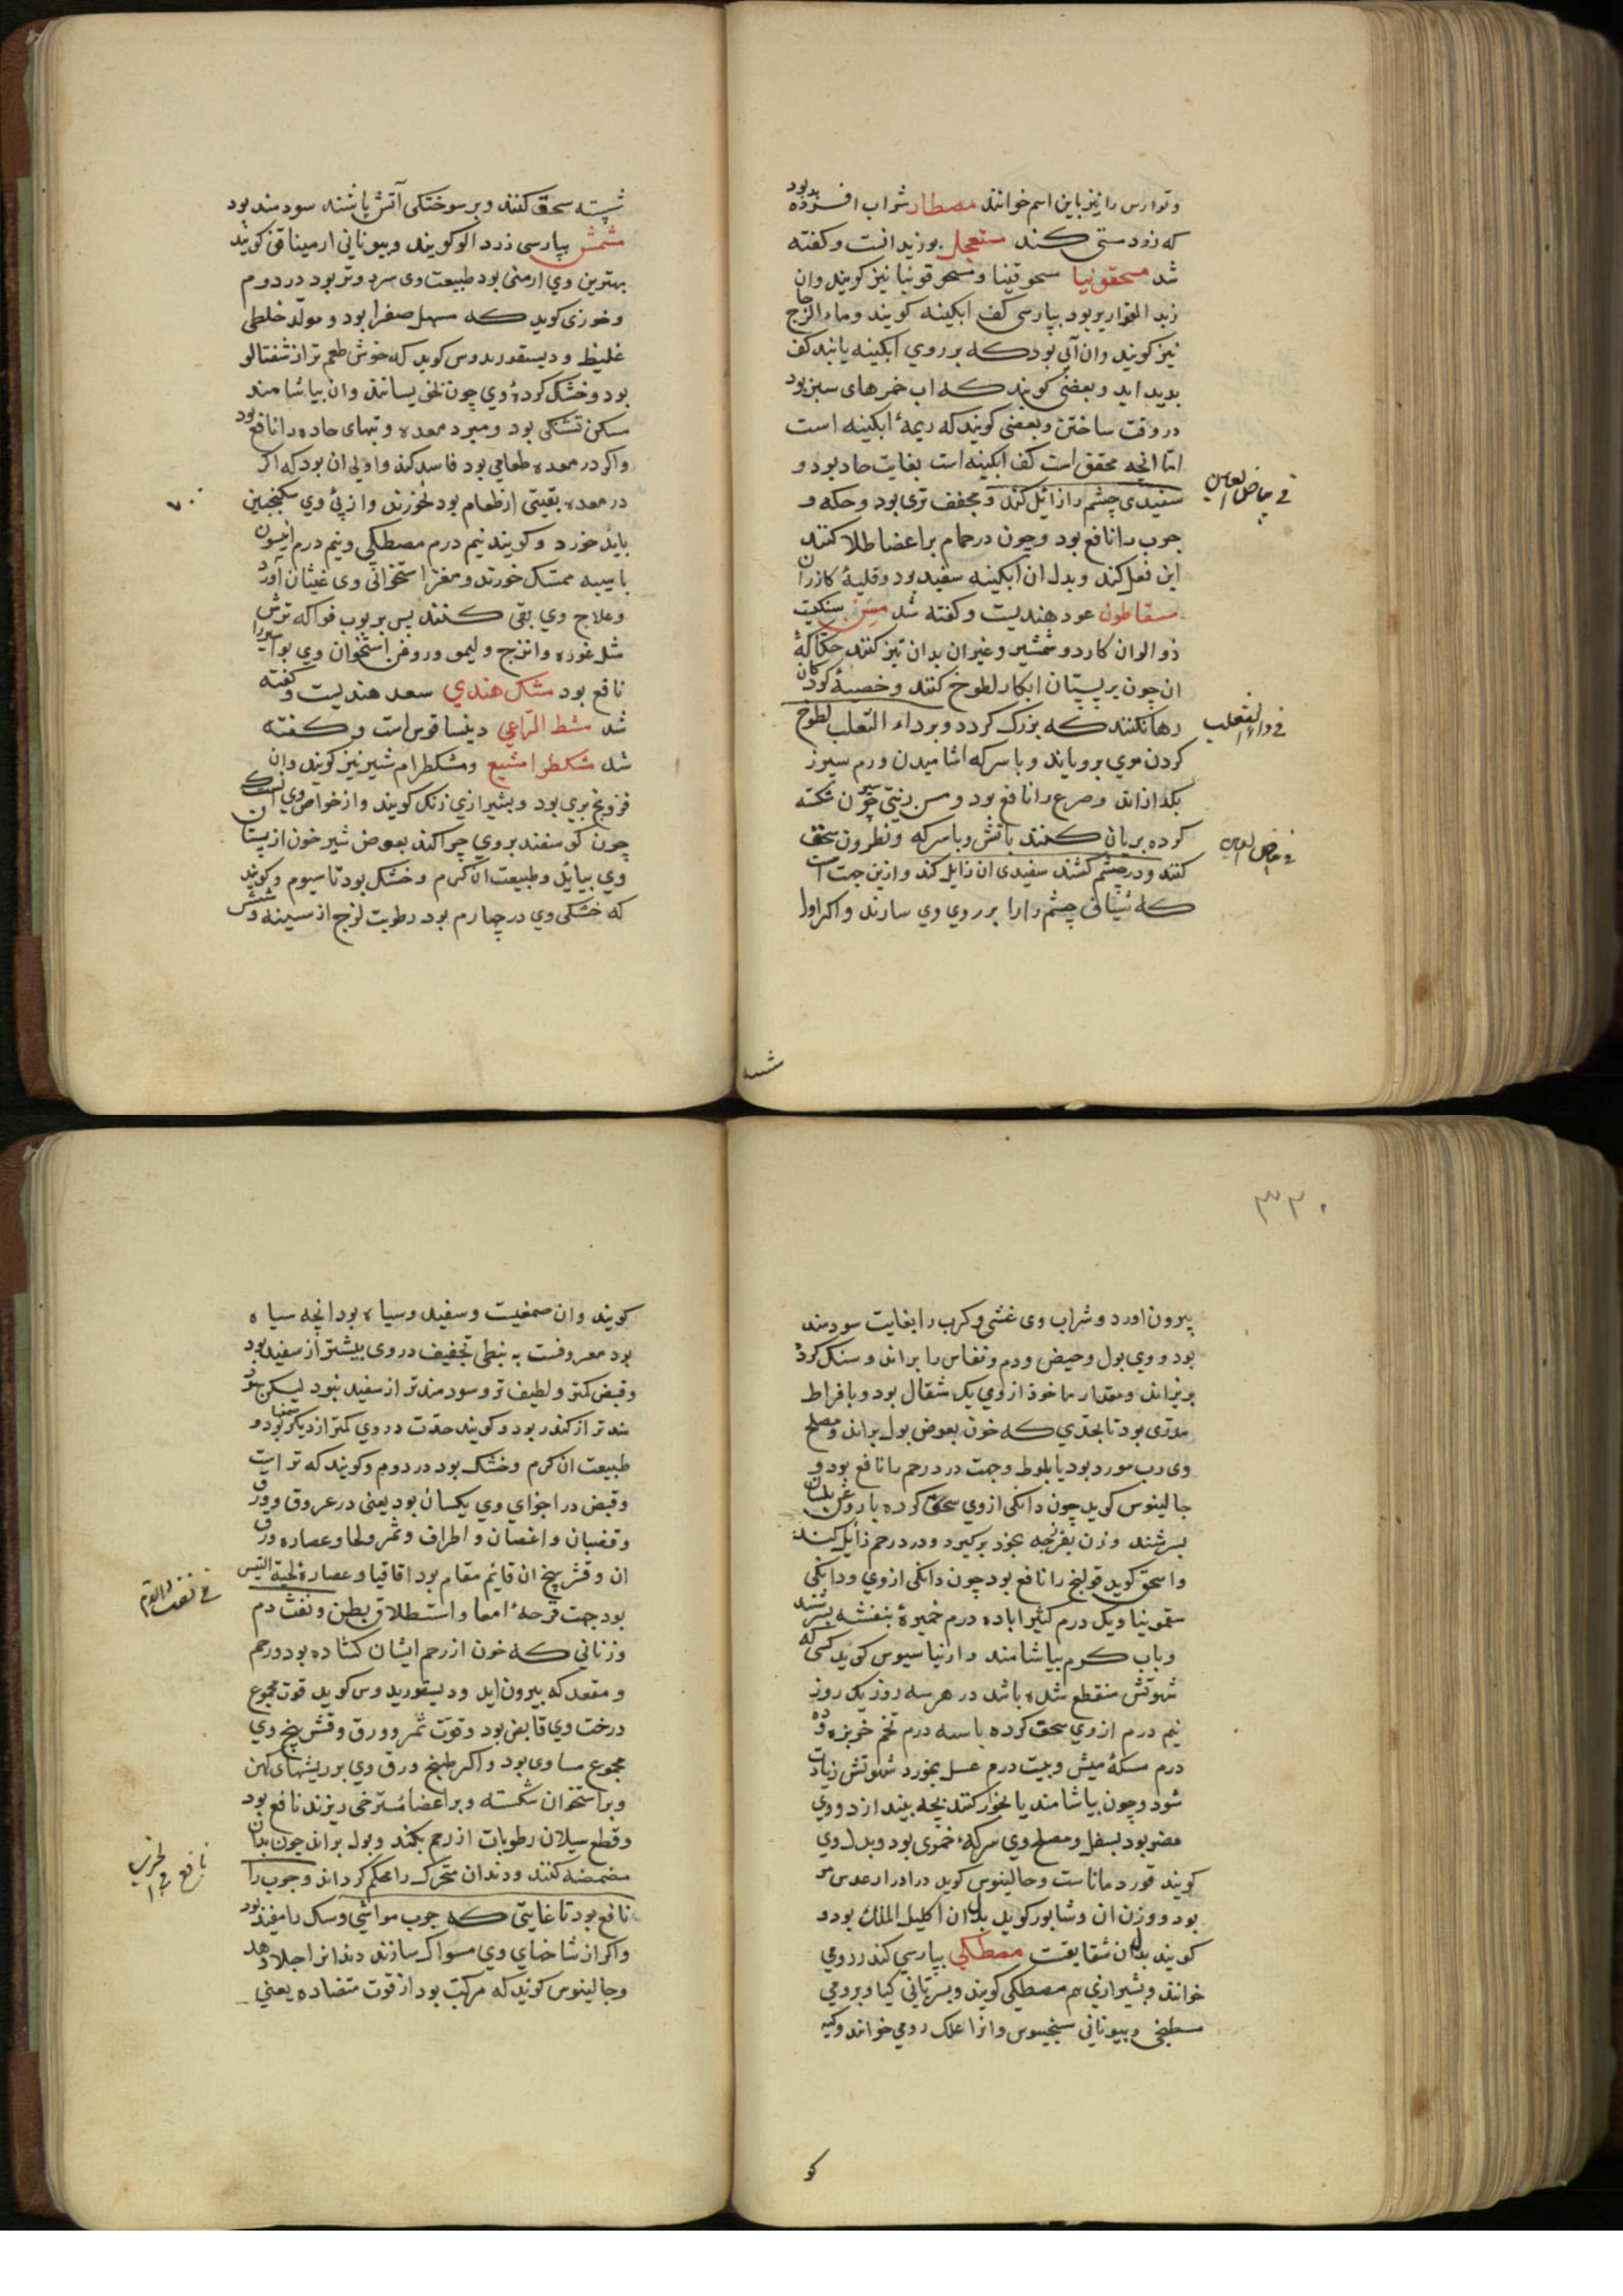 وتوارس را نیز باین اسم خوانند مصطار شراب افسرده بود
که زود مستی کند مستعجل بوزیدانست وکفته
شد مسحقونیا سحوقینا ومسحوقونیا نیز کویند وان
زبد القواریر بود بپارسی کف ابکینه کویند وماء الزجاج
نیز کویند وان آبی بود که بر روی ابکینه یابند کف
بدید اید وبعضی کویند که اب خمرهای سبز بود
در وقت ساختن وبعضی کویند که ریمهٔ ابکینه است
اما انچه محقق است کف ابکینه است بغایت حاد بود و
سفیدی چشم را زائل کند ومجفف تری بود وحکه و
جرب را نافع بود وچون در حمام بر اعضا طلا کنند
این فعل کند وبدل ان ابکینه سفید بود وقلیهٔ کازران
مسقاطون عود هندیست وکفته شد مسن سنکیت
ذو الوان کارد وشمشیر وغیر ان بدان تیز کنند حکاکهٔ
ان چون بر پستان ابکار لطوخ کنند وخصیهٔ کودکان
رها نکنند که بزرک کردد وبر داء الثعلب لطوخ
کردن موی برویاند وبا سرکه اشامیدن ورم سپرز
بکدازاند وصرع را نافع بود ومسن زیتی چون شکسته
کرده بریان کنند باتش وبا سرکه ونطرون سحق
کنند ودر چشم کشند سفیدی ان زایل کند وازین جهت است
که شیافی چشم را را بر روی وی سازند واکر اول
فی بیاض العین
فی داء الثعلب
فی بیاض العین
شسته
شسته سحق کنند وبر سوختکی آتش پاشند سودمند بود
مشمش بپارسی زرد الو کویند وبیونانی ارمیناقن کویند
بهترین وی ارمنی بود طبیعت وی سرد وتر بود در دوم
وخوزی کوید که مسهل صفرا بود ومولد خلطی
غلیظ ودیسقوریدوس کوید که خوش طعم تر از شفتالو
بود وخشک کردهٔ وی چون بخیسانند وان بیاشامند
مسکن تشنکی بود ومبرد معده وتبهای حاده را نافع بود
واکر در معده طعامی بود فاسد کند واولی ان بود که اکر
در معده بقیتی از طعام بود نخورند واز پی وی سکنجبین
باید خورد وکویند نیم درم مصطکی ونیم درم انیسون
با میبه ممسک خورند ومغز استخوان وی غثیان آورد
وعلاج وی بقی کنند پس بربوب فواکه ترش
مثل غوره واترج ولیمو وروغن استخوان وی بواسیر را
نافع بود مشک هندی سعد هندیست وکفته
شد مشط الراعی دینساقوس است وکفته
شد مشکطرامشیع ومشکطرام شیر نیز کویند وان
فودنج بری بود وبشیرازی زنک کویند واز خواص وی انست که
چون کوسفند بروی چرا کند بعوض شیر خون از پستان
وی بیاید وطبیعت ان کرم وخشک بود تا سیوم وکویند
که خشکی وی در چهارم بود رطوبت لزج از سینه وشش
۷۰
۳۳۰
بیرون اورد وشراب وی غشی وکرب را بغایت سودمند
بود ووی بول وحیض ودم ونفاس را براند وسنک کرده
بریزاند ومقدار ماخوذ از وی یک مثقال بود وبافراط
مدری بود تا بحدی که خون بعوض بول براند ومصلح
وی رب مورد بود یا بلوط وجهت درد رحم را نافع بود و
جالینوس کوید چون دانکی ازوی سحق کرده با روغن بلسان
بسرشند وزن بفرنجه بخود برکیرد ودرد رحم زایل کند
واسحق کوید قولنج را نافع بود چون دانکی ازوی ودانکی
سقمونیا ویک درم کثیرا باده درم خمیرهٔ بنفشه بسرشند
وباب کرم بیاشامند وارنیاسیوس کوید کسی که
شهوتش منقطع شده باشد در هر سه روز یک روز
نیم درم ازوی سحق کرده با سه درم تخم خربزه وده
درم مسکهٔ میش وبیست درم عسل بخورد شهوتش زیادت
شود وچون بیاشامند یا بخور کنند بچه بیندازد ووی
مضر بود بسفل ومصلح وی سرکهٔ خمری بود وبدل وی
کویند قوردماناست وجالینوس کوید در ادرار عدس مر
بود ووزن ان وشابور کوید بدل ان اکلیل الملک بود و
کویند بدل ان شقایقست مصطکی بپارسی کندر رومی
خوانند وبشیرازی هم مصطیکی کویند وبسریانی کیا وبرومی
مسطیخی وبیونانی سخینوس وانرا علک رومی خوانند وکیه
کو
کویند وان صمغیست وسفید وسیاه بود انچه سیاه
بود معروفست به نبطی تجفیف در وی بیشتر از سفید بود
وقبض کمتر ولطیف تر وسودمند تر از سفید نبود لیکن سود
مند تر از کندر بود وکویند حدت در وی کمتر از دیکر صمغها بود و
طبیعت ان کرم وخشک بود در دوم وکویند که تر است
وقبض در اجزای وی یکسان بود یعنی در عروق وورق
وقضبان واغصان واطراف وثمر ولحا وعصاره ورق
ان وقشر بیخ ان قایم مقام بود اقاقیا وعصارهٔ لحیة التیس
بود جهت قرحهٔ امعا واستطلاق بطن ونفث دم
وزنانی که خون از رحم ایشان کشاده بود ورحم
ومقعد که بیرون اید ودیسقوریدوس کوید قوت مجموع
درخت وی قابض بود وقوت ثمر وورق وقشر بیخ وی
مجموع مساوی بود واکر طبیخ ورق وی بر ریشهای کهن
وبر استخوان شکسته وبر اعضا مسترخی ریزند نافع بود
وقطع سیلان رطوبات از رحم بکند وبول براند چون بدان
مضمضه کنند ودندان متحرک را محکم کرداند وجرب را
نافع بود تا غایتی که جرب مواشی وسک را مفید بود
واکر از شاخهای وی مسواک سازند دندانرا جلا دهد
وجالینوس کوید که مرکب بود از قوت متضاده یعنی
فی نفث الدم
نافع فی الجرب